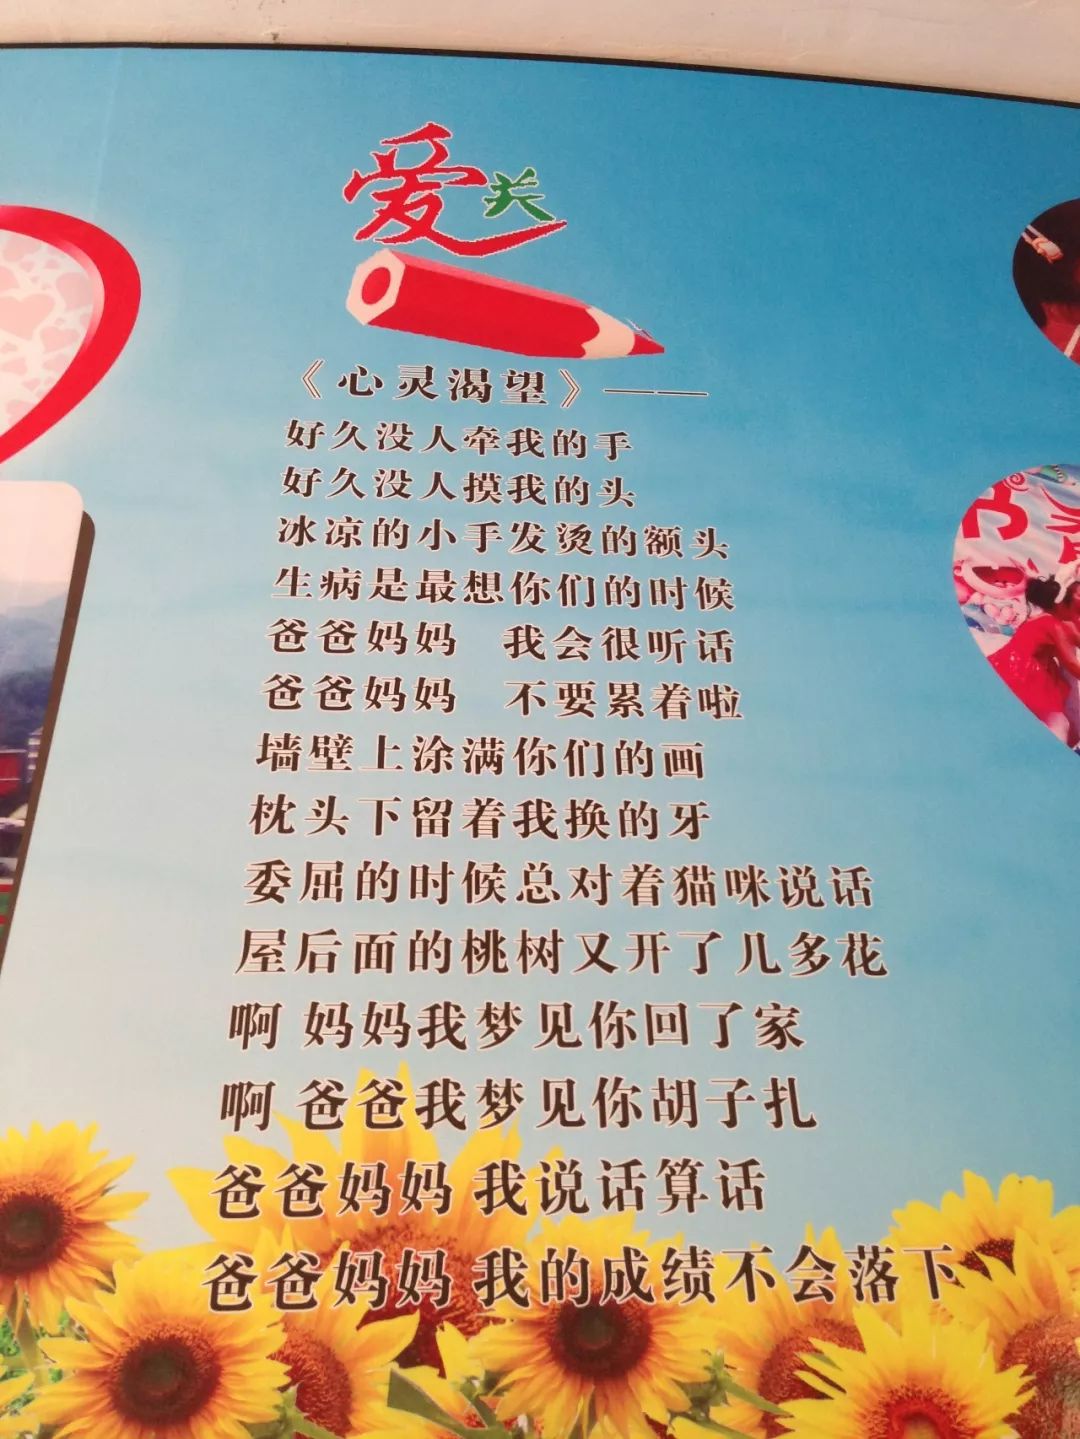 爱关
《心灵渴望》——
好久没人牵我的手
好久没人摸我的头
冰凉的小手发烫的额头
生病是最想你们的时候
爸爸妈妈 我会很听话
爸爸妈妈 不要累着啦
墙壁上涂满你们的画
枕头下留着我换的牙
委屈的时候总对着猫咪说话
屋后面的桃树又开了几多花
啊 妈妈我梦见你回了家
啊 爸爸我梦见你胡子扎
爸爸妈妈 我说话算话
爸爸妈妈 我的成绩不会落下